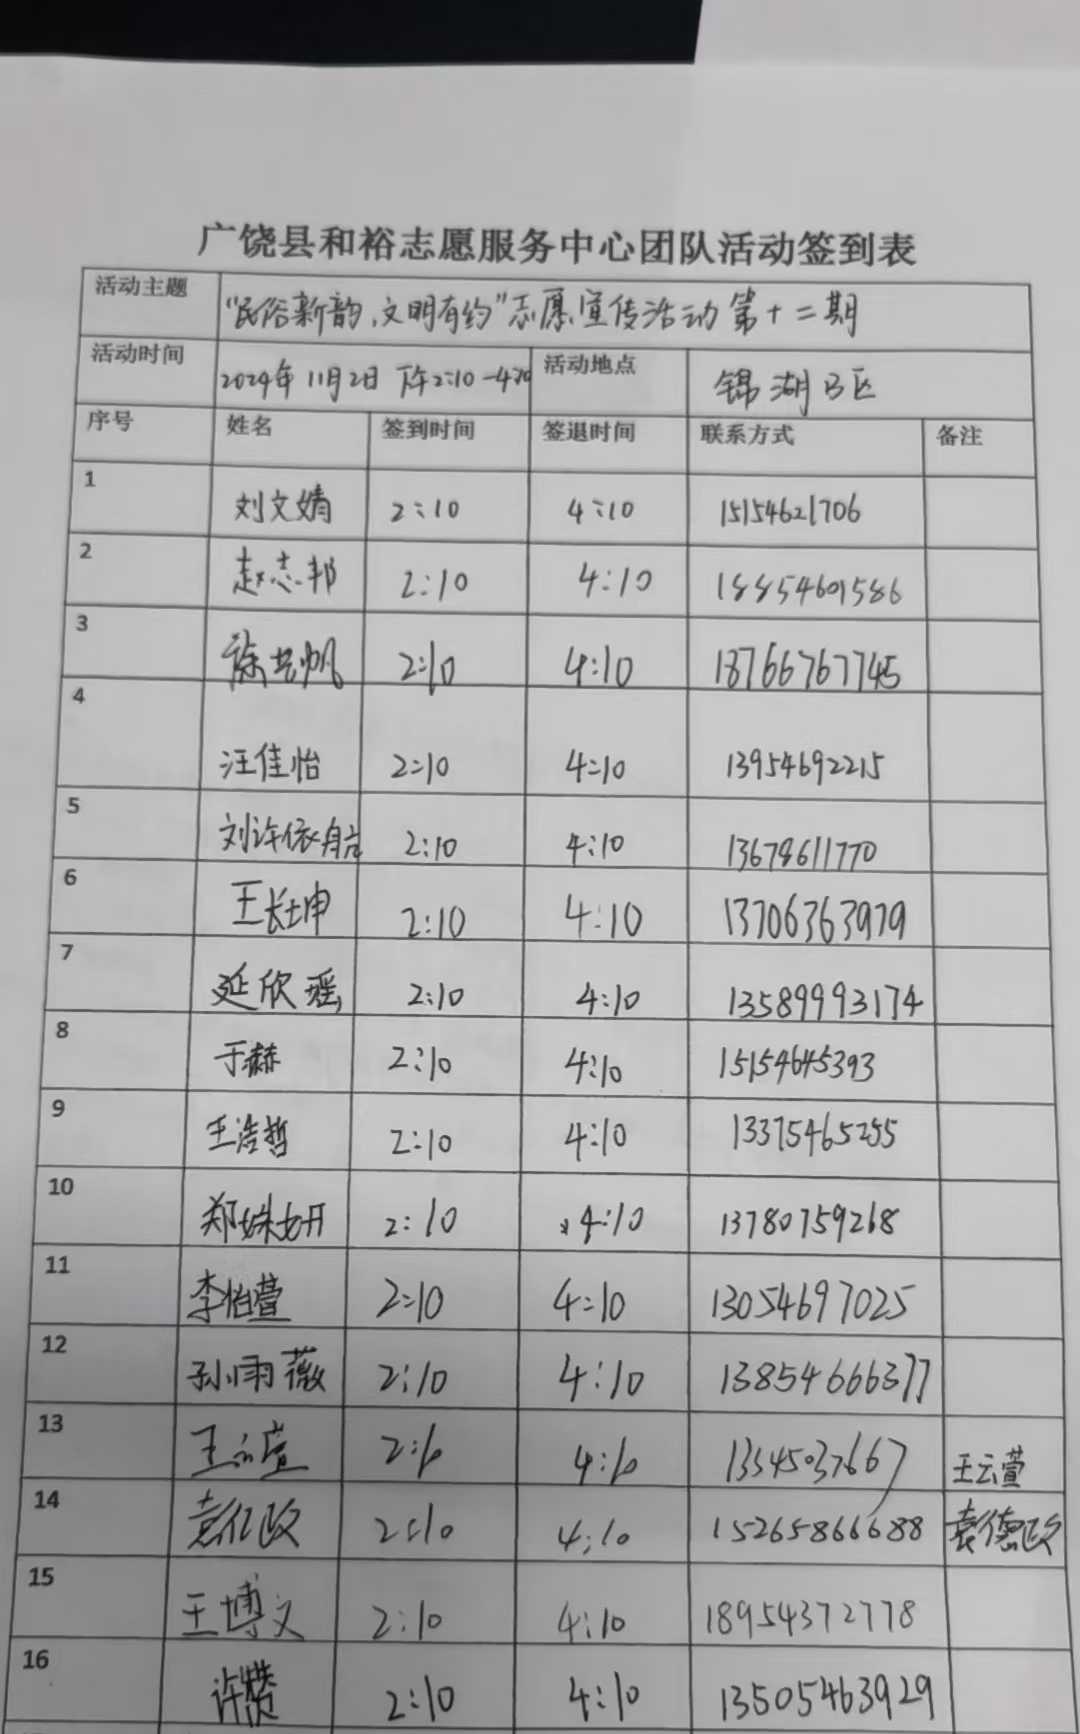 广饶县和裕志愿服务中心团队活动签到表
活动主题 “民俗新韵、文明有约”志愿宣传活动 第十二期
活动时间 2024年11月2日 下午2:10-4:10 活动地点 锦湖B区
序号 姓名 签到时间 签退时间 联系方式 备注
1 刘文婧 2:10 4:10 15154621706
2 赵志邦 2:10 4:10 18854601586
3 2:10 4:10 18766767745
4 汪佳怡 2:10 4:10 13954692215
5 刘许依航 2:10 4:10 13678611770
6 王长坤 2:10 4:10 13706363979
7 延欣瑶 2:10 4:10 13589993174
8 于赫 2:10 4:10 15154645393
9 王浩哲 2:10 4:10 13375465255
10 郑姝妍 2:10 4:10 13780759268
11 李怡萱 2:10 4:10 13054697025
12 孙雨薇 2:10 4:10 13854666377
13 王云萱 2:10 4:10 王云萱
14 袁德政 2:10 4:10 15265866688 袁德政
15 王博文 2:10 4:10 18954372778
16 许赞 2:10 4:10 13505463929